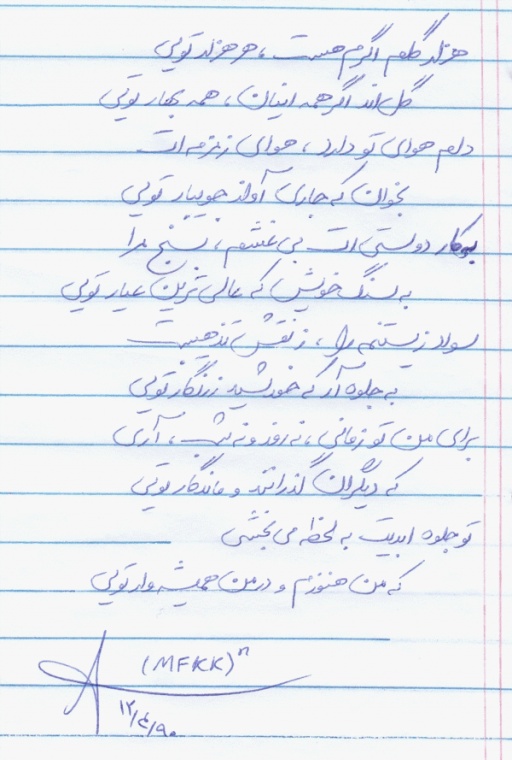 هزار گلم اگرم هست، هر هزار تویی
گل اند اگر همه اینان، همه بهار تویی
دلم هوای تو دارد، هوای زمزمه ات
بخوان که جاری آواز جویبار تویی
به کار دوستی ات بی غشم، بسنج مرا
به سنگ خویش که عالی ترین عیار تویی
سواد زیستنم را، ز نقش تذهیبت
به جلوه آر که خورشید زرنگار تویی
برای من تو زمانی، نه روز و نه شب، آری
که دیگران گذرانند و ماندگار تویی
تو جلوه ابدیت به لحظه می بخشی
که من هنوزم و در من همیشه وار تویی
(MFKK)ⁿ
۱۲/۴/۹۰